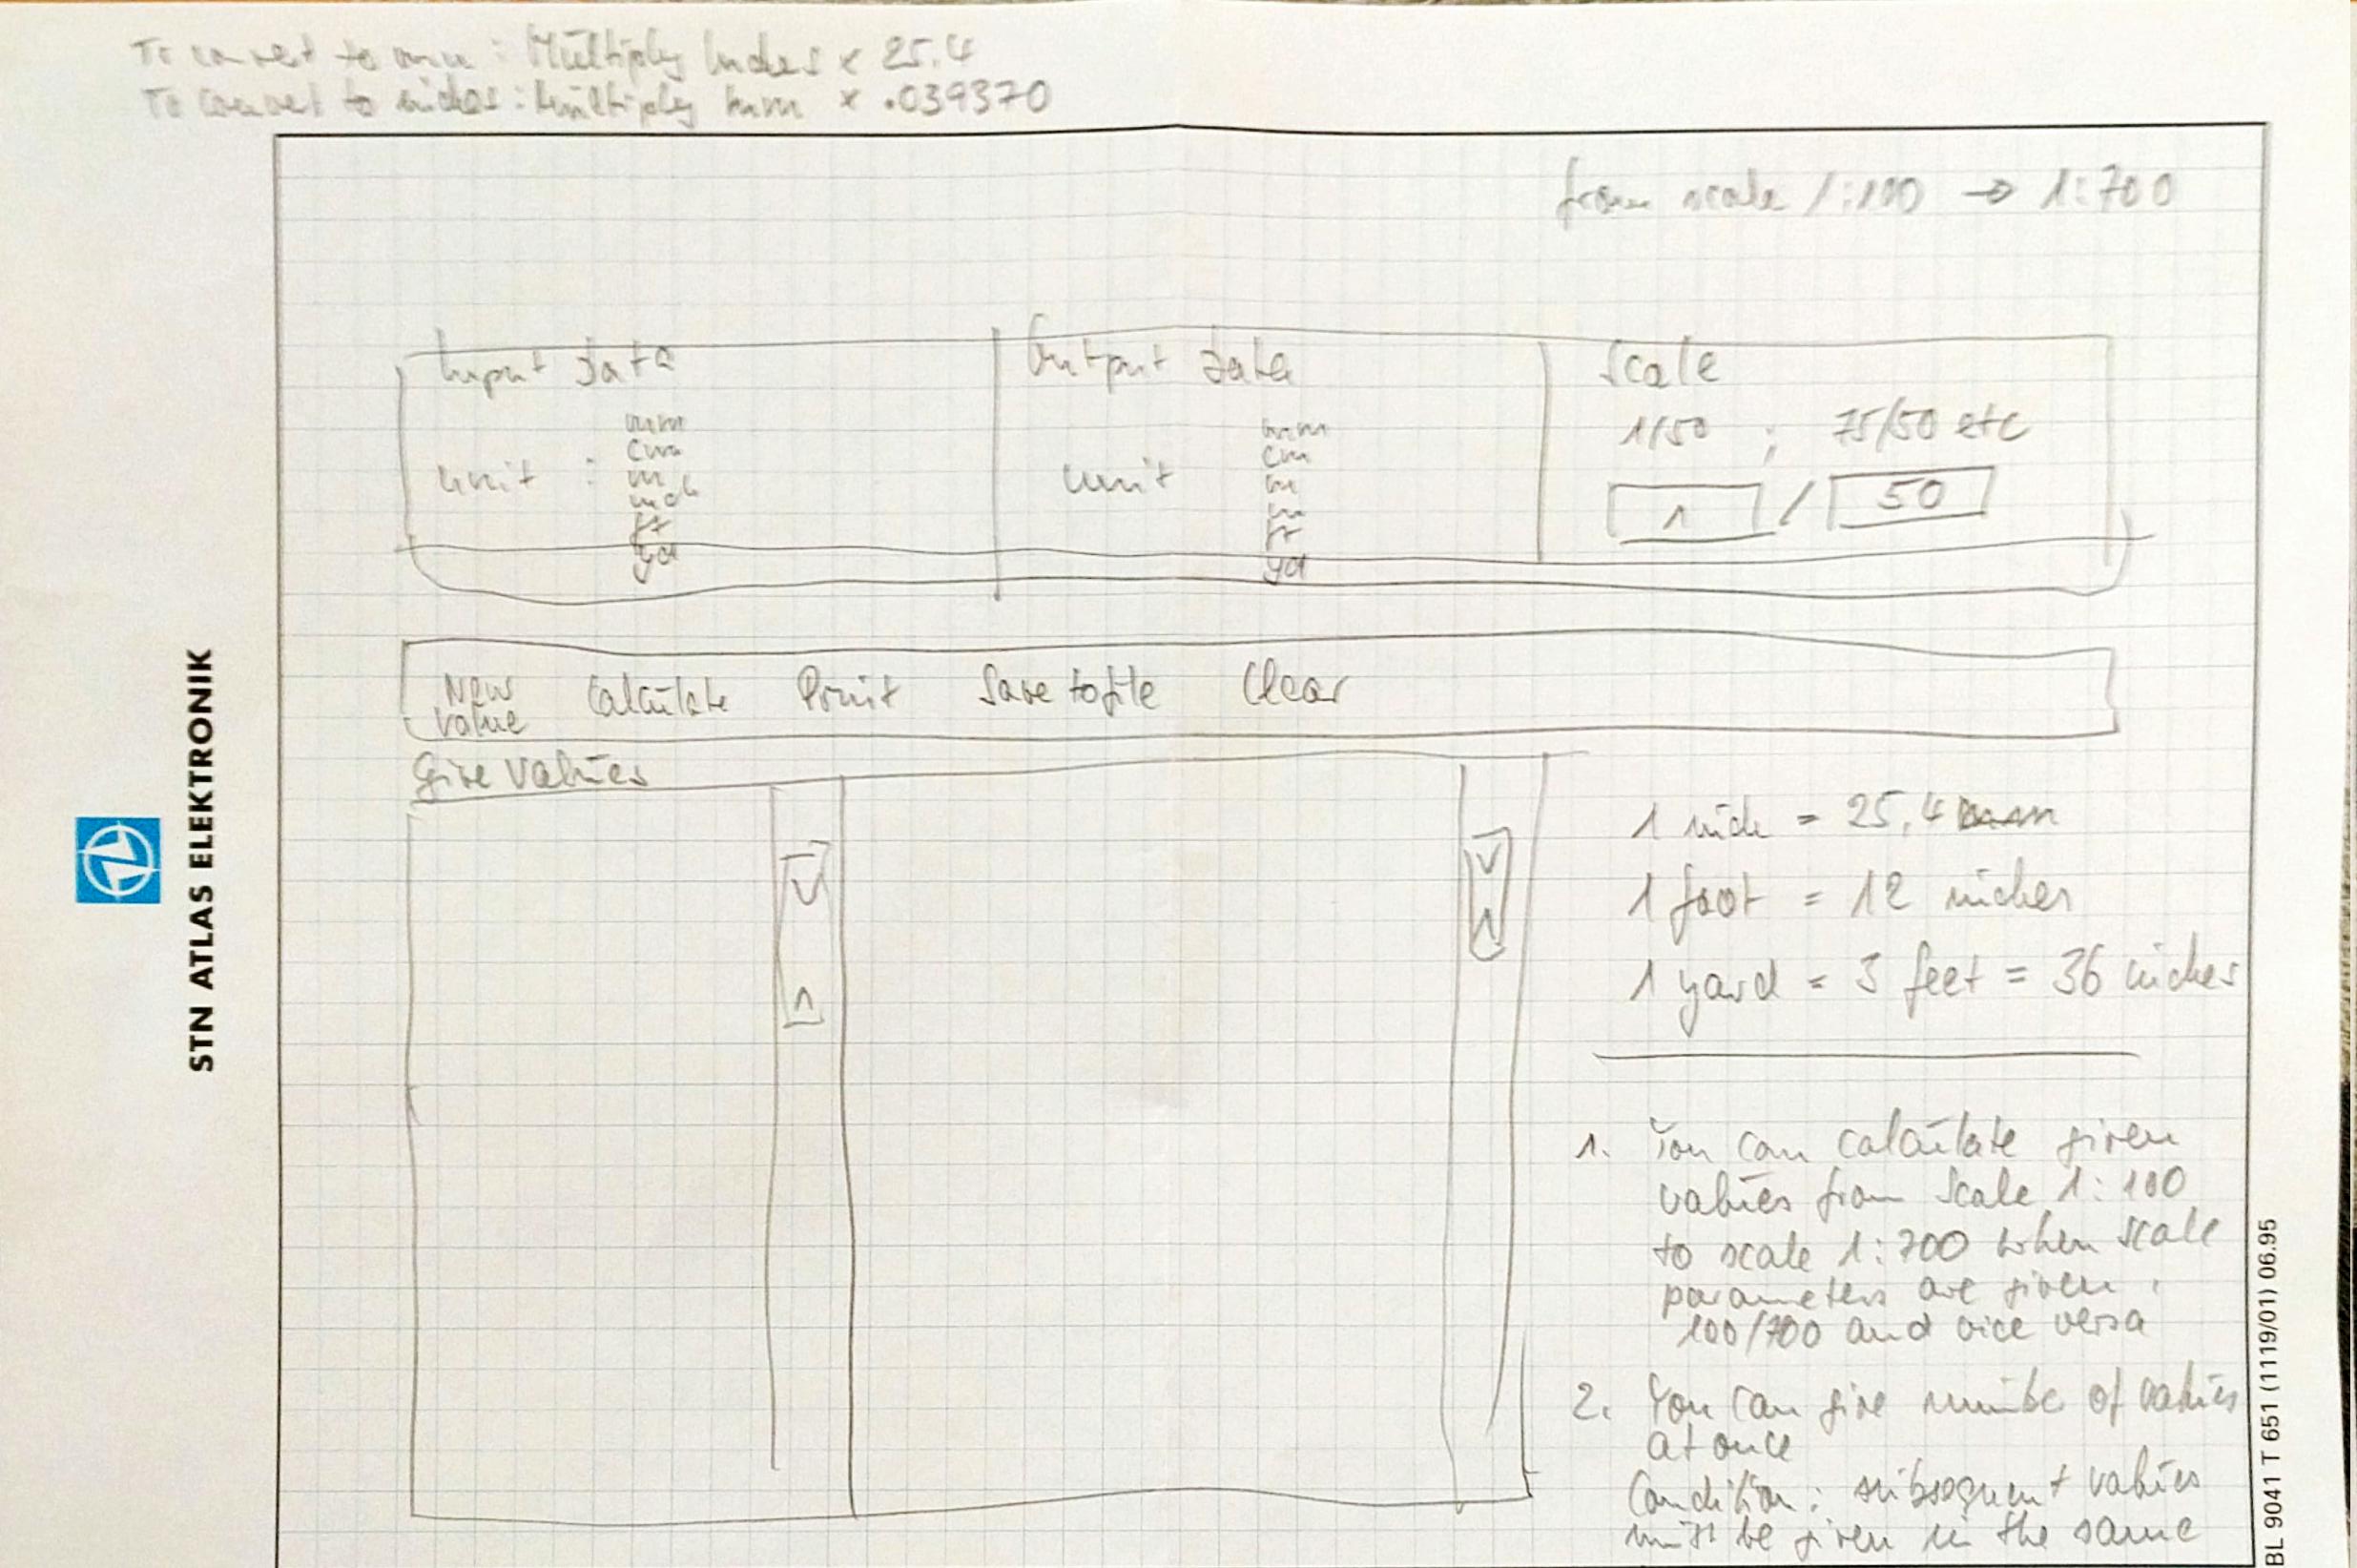 To convert to mm : Multiply Inches x 25.4
To convert to inches : Multiply mm x .039370
from scale 1:100 → 1:700
Input Data
Output Data
Scale
mm
cm
unit : m
inch
ft
yd
mm
cm
unit m
in
ft
yd
1/50 ; 75/50 etc
1 / 50
New Value
Calculate
Print
Save to file
Clear
Give Values
1 inch = 25,4 mm
1 foot = 12 inches
1 yard = 3 feet = 36 inches
1. You can calculate given
values from scale 1:100
to scale 1:700 when scale
parameters are given
100/700 and vice versa
2. You can give numbe of values
at once
Condition: subsequent values
must be given in the same
STN ATLAS ELEKTRONIK
BL 9041 T 651 (1119/01) 06.95